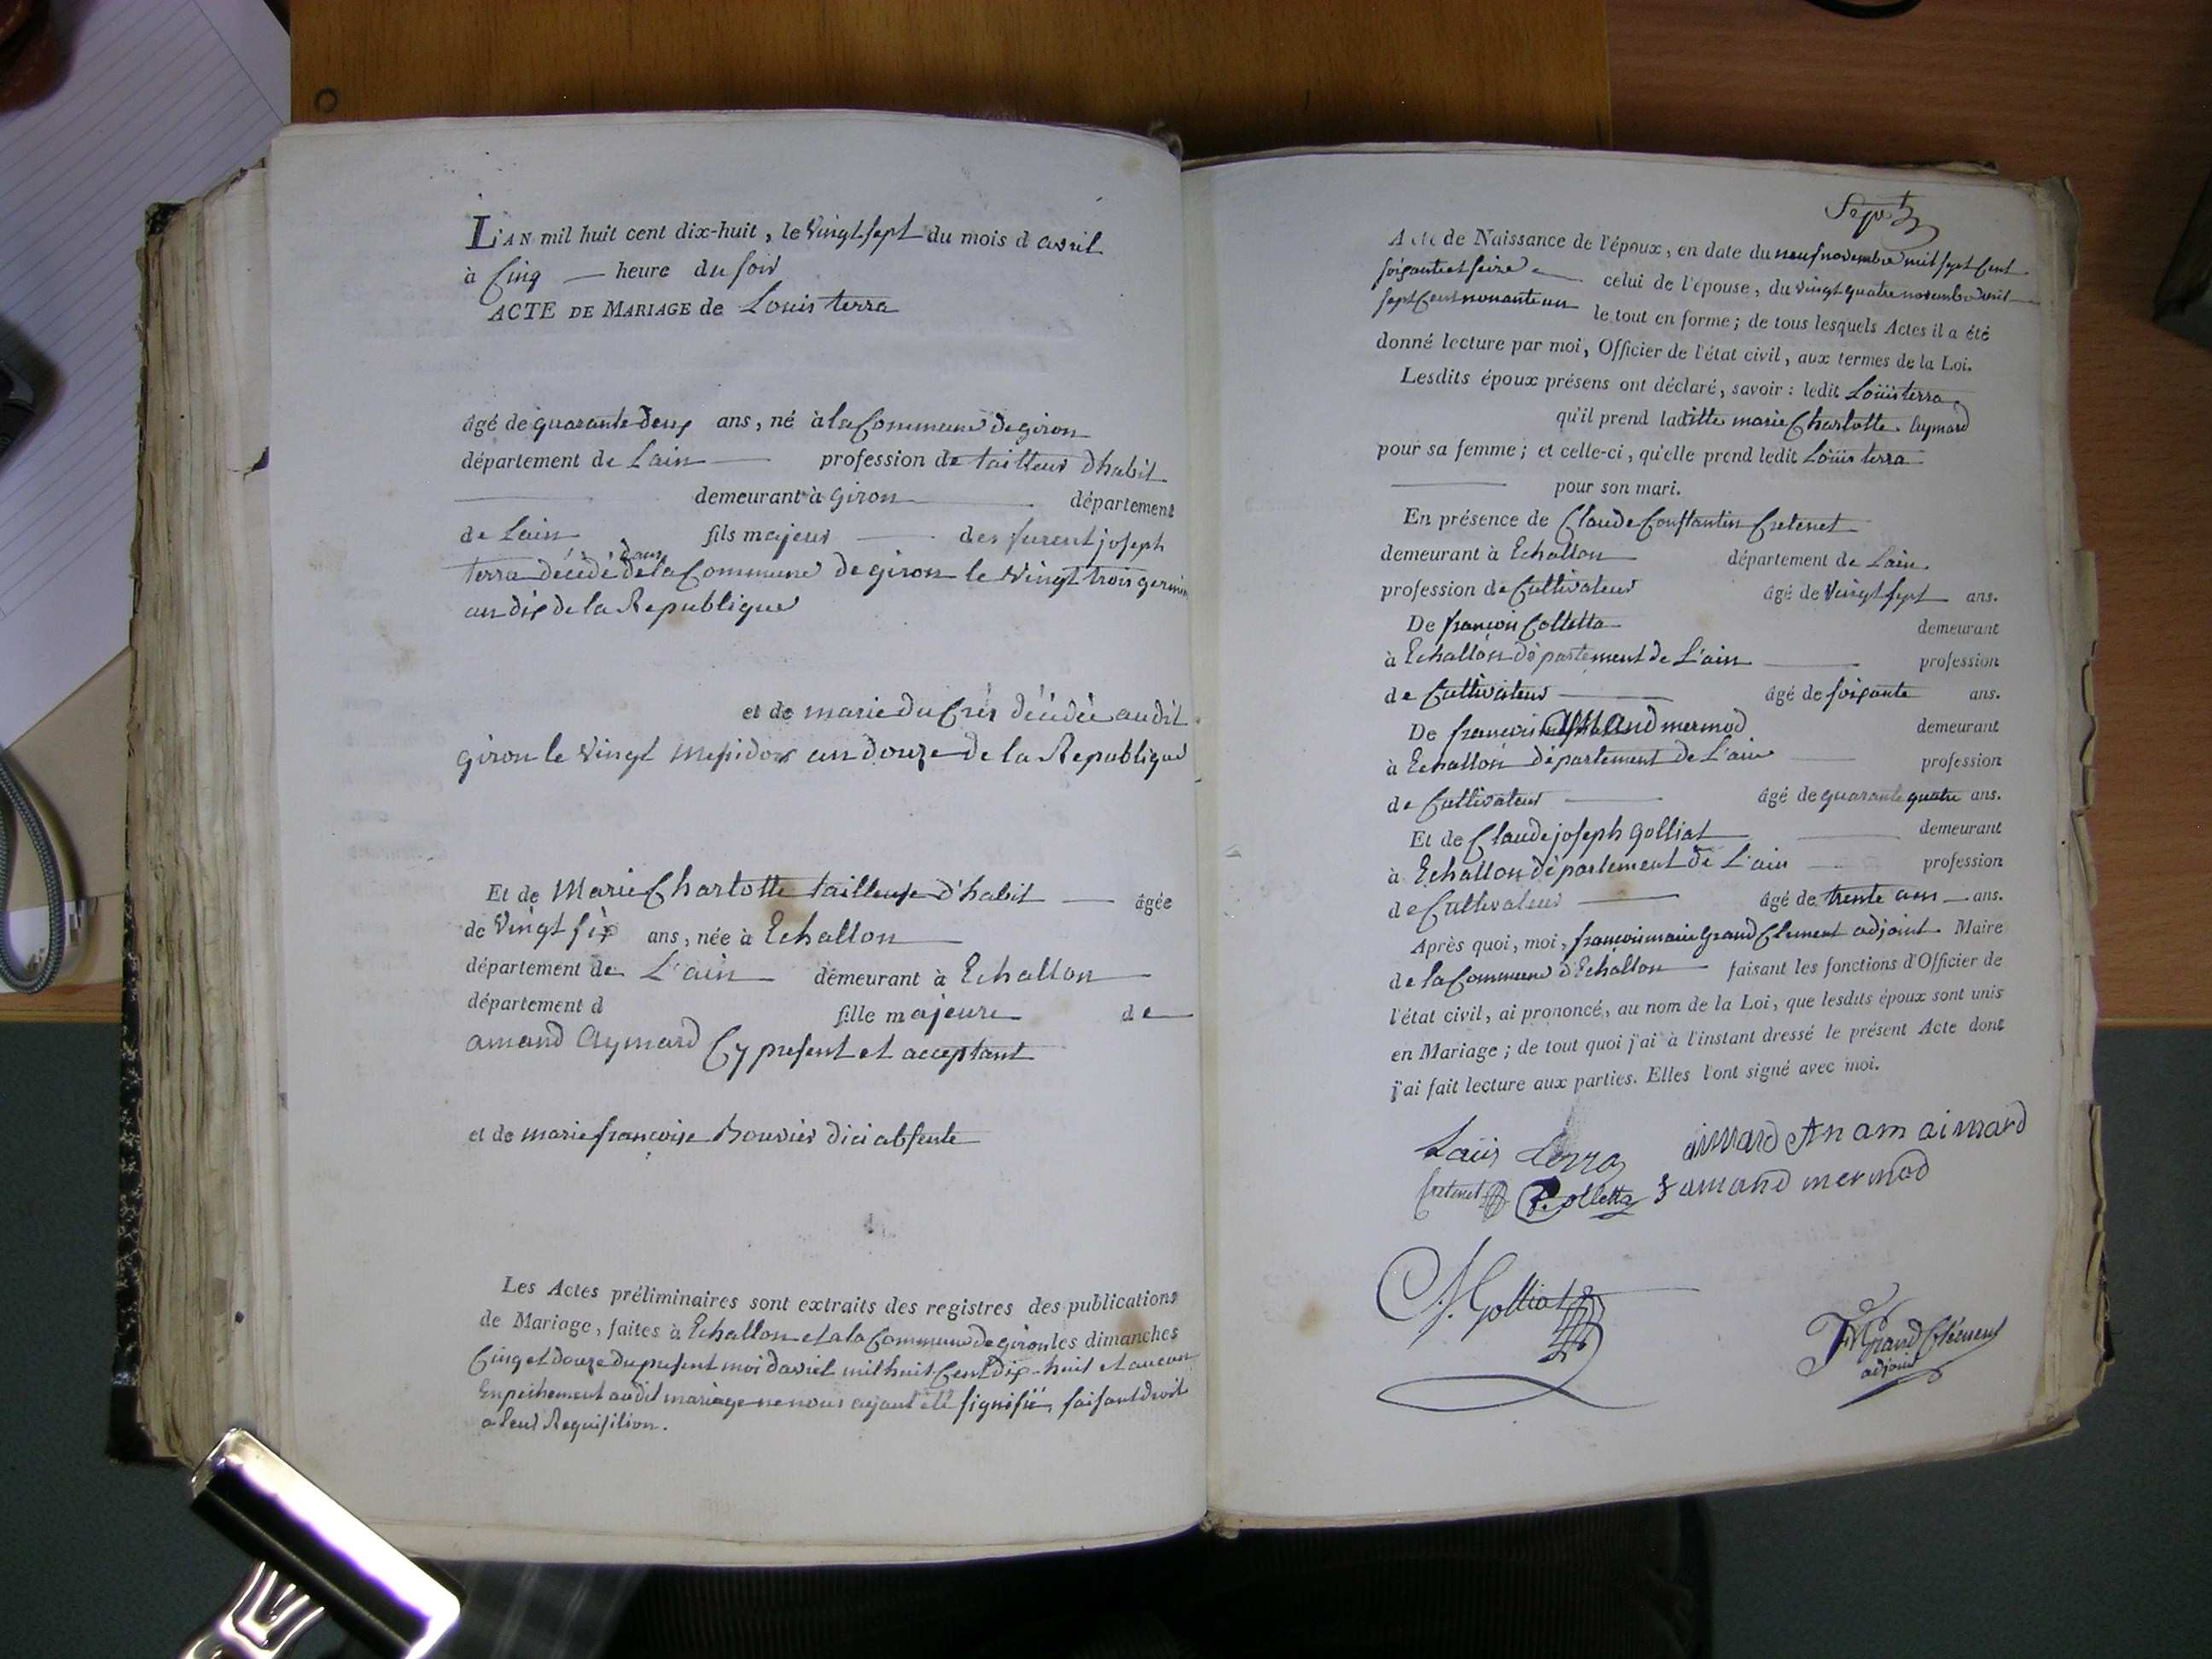 L'AN mil huit cent dix-huit, le Vingt sept du mois d avril
à Cinq — heure du soir
ACTE DE MARIAGE de Louis terra
âgé de quarante deux ans, né à la Commune de giron
département de Lain — profession de tailleur dhabit
— demeurant à Giron — département
de Lain fils majeur — des furent joseph
dans
terra décédé de la Commune de giron le Vingt trois germin
an dix de la Republique
et de marie du Crés décédée audit
giron le Vingt messidor an douze de la Republique
Et de Marie Charlotte tailleuse d'habit — âgée
de Vingt six ans, née à Echallon —
département de L'ain demeurant à Echallon —
département d fille majeure de
amand Aymard Cy present et acceptant
et de marie françoise Bouvier dici absente
Les Actes préliminaires sont extraits des registres des publications
de Mariage, faites à Echallon et a la Commune de giron les dimanches
Cinq et douze du present moi davril mil huit Cent dix-huit et aucun
Enpechement audit mariage ne nous ayant été signifié, faisant droit
a leur Requisition.
Acte de Naissance de l'époux, en date du neuf novembre mil sept Cent
soixante et seize — celui de l'épouse, du vingt quatre novembre mil
sept Cent nonante un le tout en forme; de tous lesquels Actes il a été
donné lecture par moi, Officier de l'état civil, aux termes de la Loi.
Lesdits époux présens ont déclaré, savoir: ledit Loüis terra
qu'il prend laditte marie Charlotte Eymard
pour sa femme; et celle-ci, qu'elle prend ledit Loüis terra
— pour son mari.
En présence de Claude Constantin Cretenet
demeurant à Echallon département de Lain.
profession de Cultivateur âgé de Vingt sept ans.
De françois Colletta demeurant
à Echallon département de L'ain — profession
de Cultivateur — âgé de soixante ans.
De françois amand mermod demeurant
à Echallon département de L'ain — profession
de Cultivateur — âgé de quarante quatre ans.
Et de Claude joseph Golliat — demeurant
à Echallon département de L'ain — profession
de Cultivateur — âgé de trente ans — ans.
Après quoi, moi, françois marie Grand Clement adjoint Maire
de la Commune d'Echallon — faisant les fonctions d'Officier de
l'état civil, ai prononcé, au nom de la Loi, que lesdits époux sont unis
en Mariage; de tout quoi j'ai à l'instant dressé le présent Acte dont
j'ai fait lecture aux parties. Elles l'ont signé avec moi.
Laüis Lerra aimard
am aimard
Cretenet F. Colletta f amand mermod
Golliat
Grand Clément
adjoint